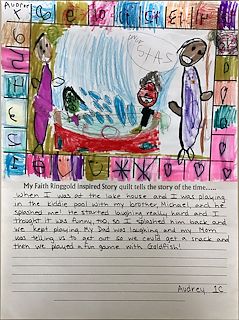 Audrey
My Faith Ringgold inspired Story quilt tells the story of the time.....
When I was at the lake house and I was playing
in the kiddie pool with my brother, Michael, and he
splashed me! He started laughing really hard and I
thought it was funny, too, so I splashed him back and
we kept playing. My Dad was laughing and my Mom
was telling us to get out so we could get a snack and
then we played a fun game with Goldfish!
Audrey 1C